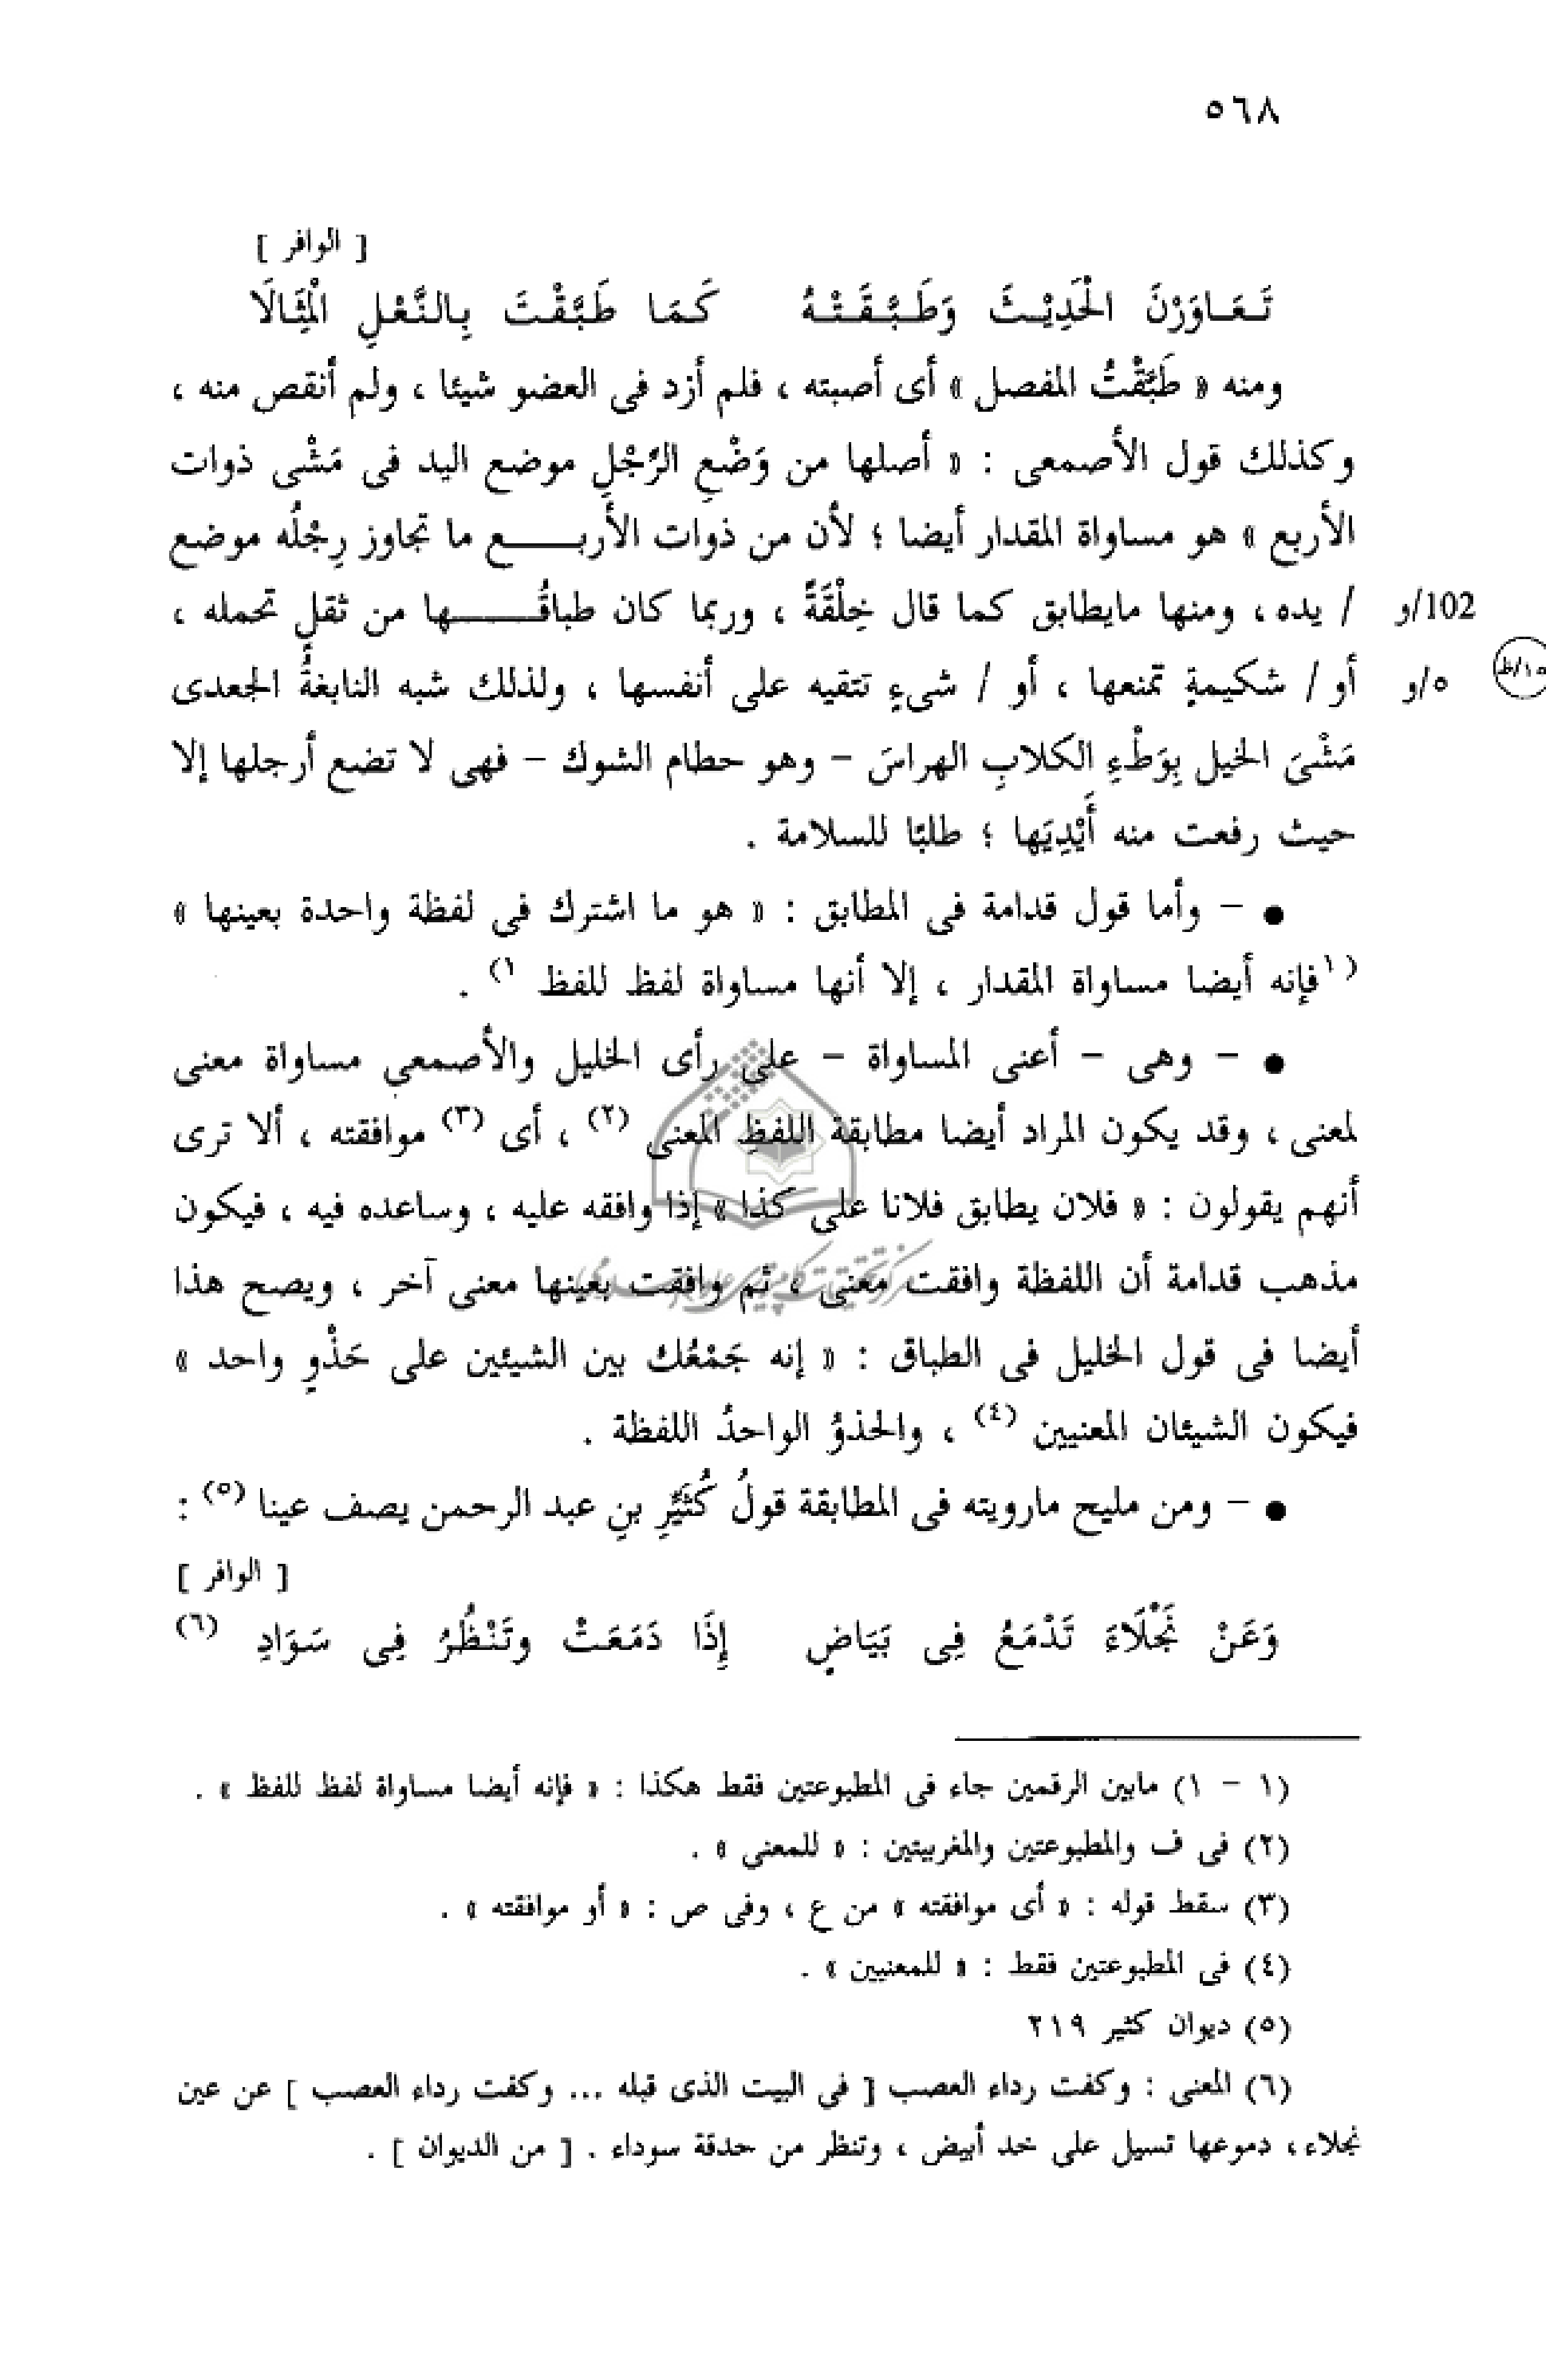 ٥٦٨
[ الوافر ]
تَـعَـاوَرْنَ الْحَدِيْـثَ وَطَـبَّـقَـتْـهُ كَـمَـا طَبَّقْـتَ بِـالنَّعْـلِ الْمِثَـالَا
ومنه « طَبَّقْتُ المفصل » أى أصبته ، فلم أزد فى العضو شيئا ، ولم أنقص منه ،
وكذلك قول الأصمعى : « أصلها من وَضْعِ الرِّجْلِ موضع اليد فى مَشْى ذوات
الأربع » هو مساواة المقدار أيضا ؛ لأن من ذوات الأربـــــع ما تجاوز رِجْلُه موضع
102/و / يده ، ومنها مايطابق كما قال خِلْقَةً ، وربما كان طباقُـــــها من ثقلٍ تحمله ،
٥/و أو / شكيمةٍ تمنعها ، أو / شىءٍ تتقيه على أنفسها ، ولذلك شبه النابغةُ الجعدى
مَشْىَ الخيل بِوَطْءِ الكلابِ الهراسَ – وهو حطام الشوك – فهى لا تضع أرجلها إلا
حيث رفعت منه أَيْدِيَها ؛ طلبًا للسلامة .
● – وأما قول قدامة فى المطابق : « هو ما اشترك فى لفظة واحدة بعينها »
(١ فإنه أيضا مساواة المقدار ، إلا أنها مساواة لفظ للفظ ١) .
● – وهى – أعنى المساواة – على رأى الخليل والأصمعي مساواة معنى
لمعنى ، وقد يكون المراد أيضا مطابقة اللفظِ المعنى (٢) ، أى (٣) موافقته ، ألا ترى
أنهم يقولون : « فلان يطابق فلانا على كذا » إذا وافقه عليه ، وساعده فيه ، فيكون
مذهب قدامة أن اللفظة وافقت معنى ، ثم وافقت بعينها معنى آخر ، ويصح هذا
أيضا فى قول الخليل فى الطباق : « إنه جَمْعُك بين الشيئين على حَذْوٍ واحد »
فيكون الشيئان المعنيين (٤) ، والحذوُ الواحدُ اللفظة .
● – ومن مليح مارويته فى المطابقة قولُ كُثَيِّرِ بنِ عبد الرحمن يصف عينا (٥) :
[ الوافر ]
وَعَنْ نَجْلَاءَ تَدْمَعُ فِى بَيَاضٍ إِذَا دَمَعَتْ وتَنْظُرُ فِى سَوَادِ (٦)
(١ – ١) مابين الرقمين جاء فى المطبوعتين فقط هكذا : « فإنه أيضا مساواة لفظ للفظ » .
(٢) فى ف والمطبوعتين والمغربيتين : « للمعنى » .
(٣) سقط قوله : « أى موافقته » من ع ، وفى ص : « أو موافقته » .
(٤) فى المطبوعتين فقط : « للمعنيين » .
(٥) ديوان كثير ٢١٩
(٦) المعنى : وكفت رداء العصب [ فى البيت الذى قبله ... وكفت رداء العصب ] عن عين
نجلاء ، دموعها تسيل على خد أبيض ، وتنظر من حدقة سوداء . [ من الديوان ] .